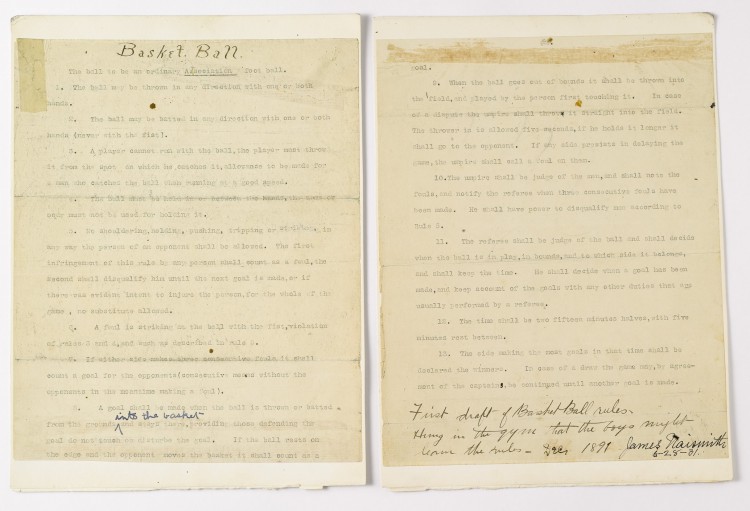 Basket Ball.
The ball to be an ordinary Association foot ball.
1. The ball may be thrown in any direction with one or both
hands.
2. The ball may be batted in any direction with one or both
hands (never with the fist).
3. A player cannot run with the ball, the player must throw
it from the spot on which he catches it, allowance to be made for
a man who catches the ball when running at a good speed.
4. The ball must be held in or between the hands, the arms or
body must not be used for holding it.
5. No shouldering, holding, pushing, tripping or striking, in
any way the person of an opponent shall be allowed. The first
infringement of this rule by any person shall count as a foul, the
second shall disqualify him until the next goal is made, or if
there was evident intent to injure the person, for the whole of the
game, no substitute allowed.
6. A foul is striking at the ball with the fist, violation
of rules 3 and 4, and such as described in rule 5.
7. If either side makes three consecutive fouls it shall
count a goal for the opponents (consecutive means without the
opponents in the meantime making a foul).
8. A goal shall be made when the ball is thrown or batted
into the basket
from the grounds and stays there, providing those defending the
goal do not touch or disturb the goal. If the ball rests on
the edge and the opponent moves the basket it shall count as a
goal.
9. When the ball goes out of bounds it shall be thrown into
the field, and played by the person first touching it. In case
of a dispute the umpire shall throw it straight into the field.
The thrower in is allowed five seconds, if he holds it longer it
shall go to the opponent. If any side persists in delaying the
game, the umpire shall call a foul on them.
10. The umpire shall be judge of the men, and shall note the
fouls, and notify the referee when three consecutive fouls have
been made. He shall have power to disqualify men according to
Rule 5.
11. The referee shall be judge of the ball and shall decide
when the ball is in play, in bounds, and to which side it belongs,
and shall keep the time. He shall decide when a goal has been
made, and keep account of the goals with any other duties that are
usually performed by a referee.
12. The time shall be two fifteen minutes halves, with five
minutes rest between.
13. The side making the most goals in that time shall be
declared the winners. In case of a draw the game may, by agree-
ment of the captains, be continued until another goal is made.
First draft of Basket Ball rules.
Hung in the gym that the boys might
learn the rules - Dec 1891 James Naismith
6-28-31.